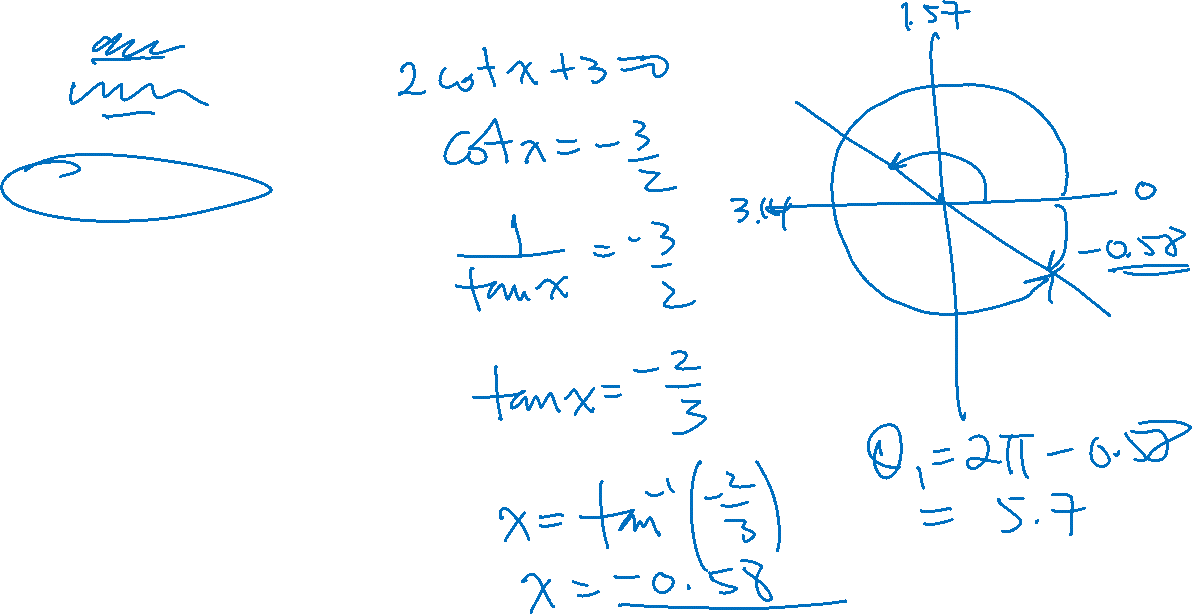 2 cot x + 3 = 0
cot x = -3/2
1/tan x = -3/2
tan x = -2/3
x = tan⁻¹(-2/3)
x = -0.58
1.57
0
3.14
-0.58
θ₁ = 2π - 0.58
= 5.7